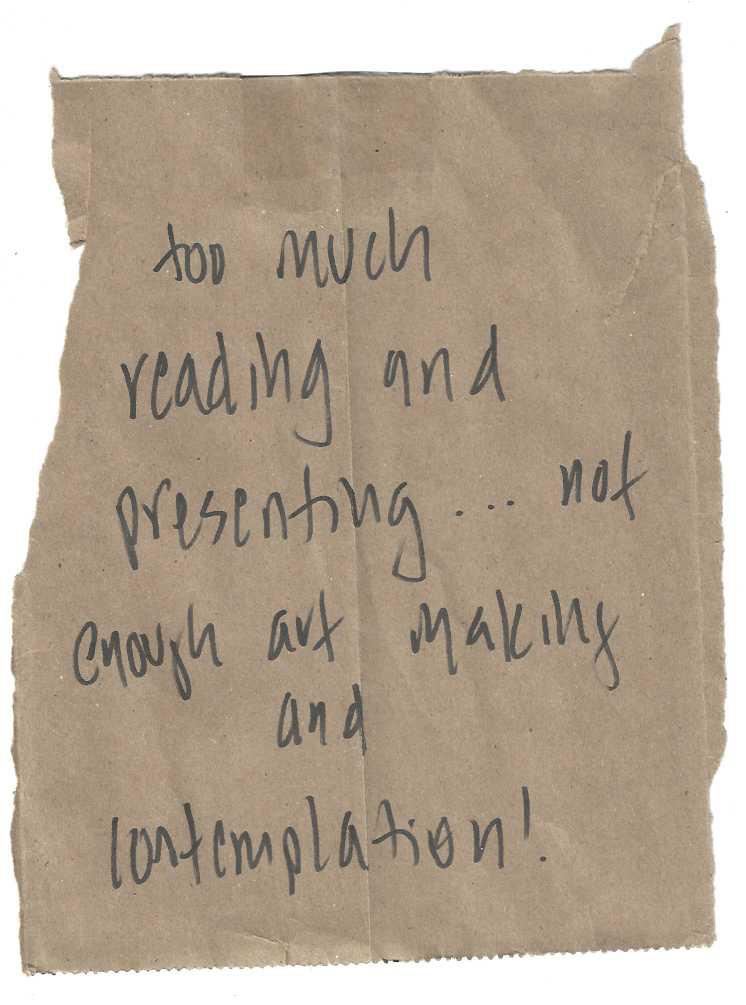 too much
reading and
presenting... not
enough art making
and
contemplation!